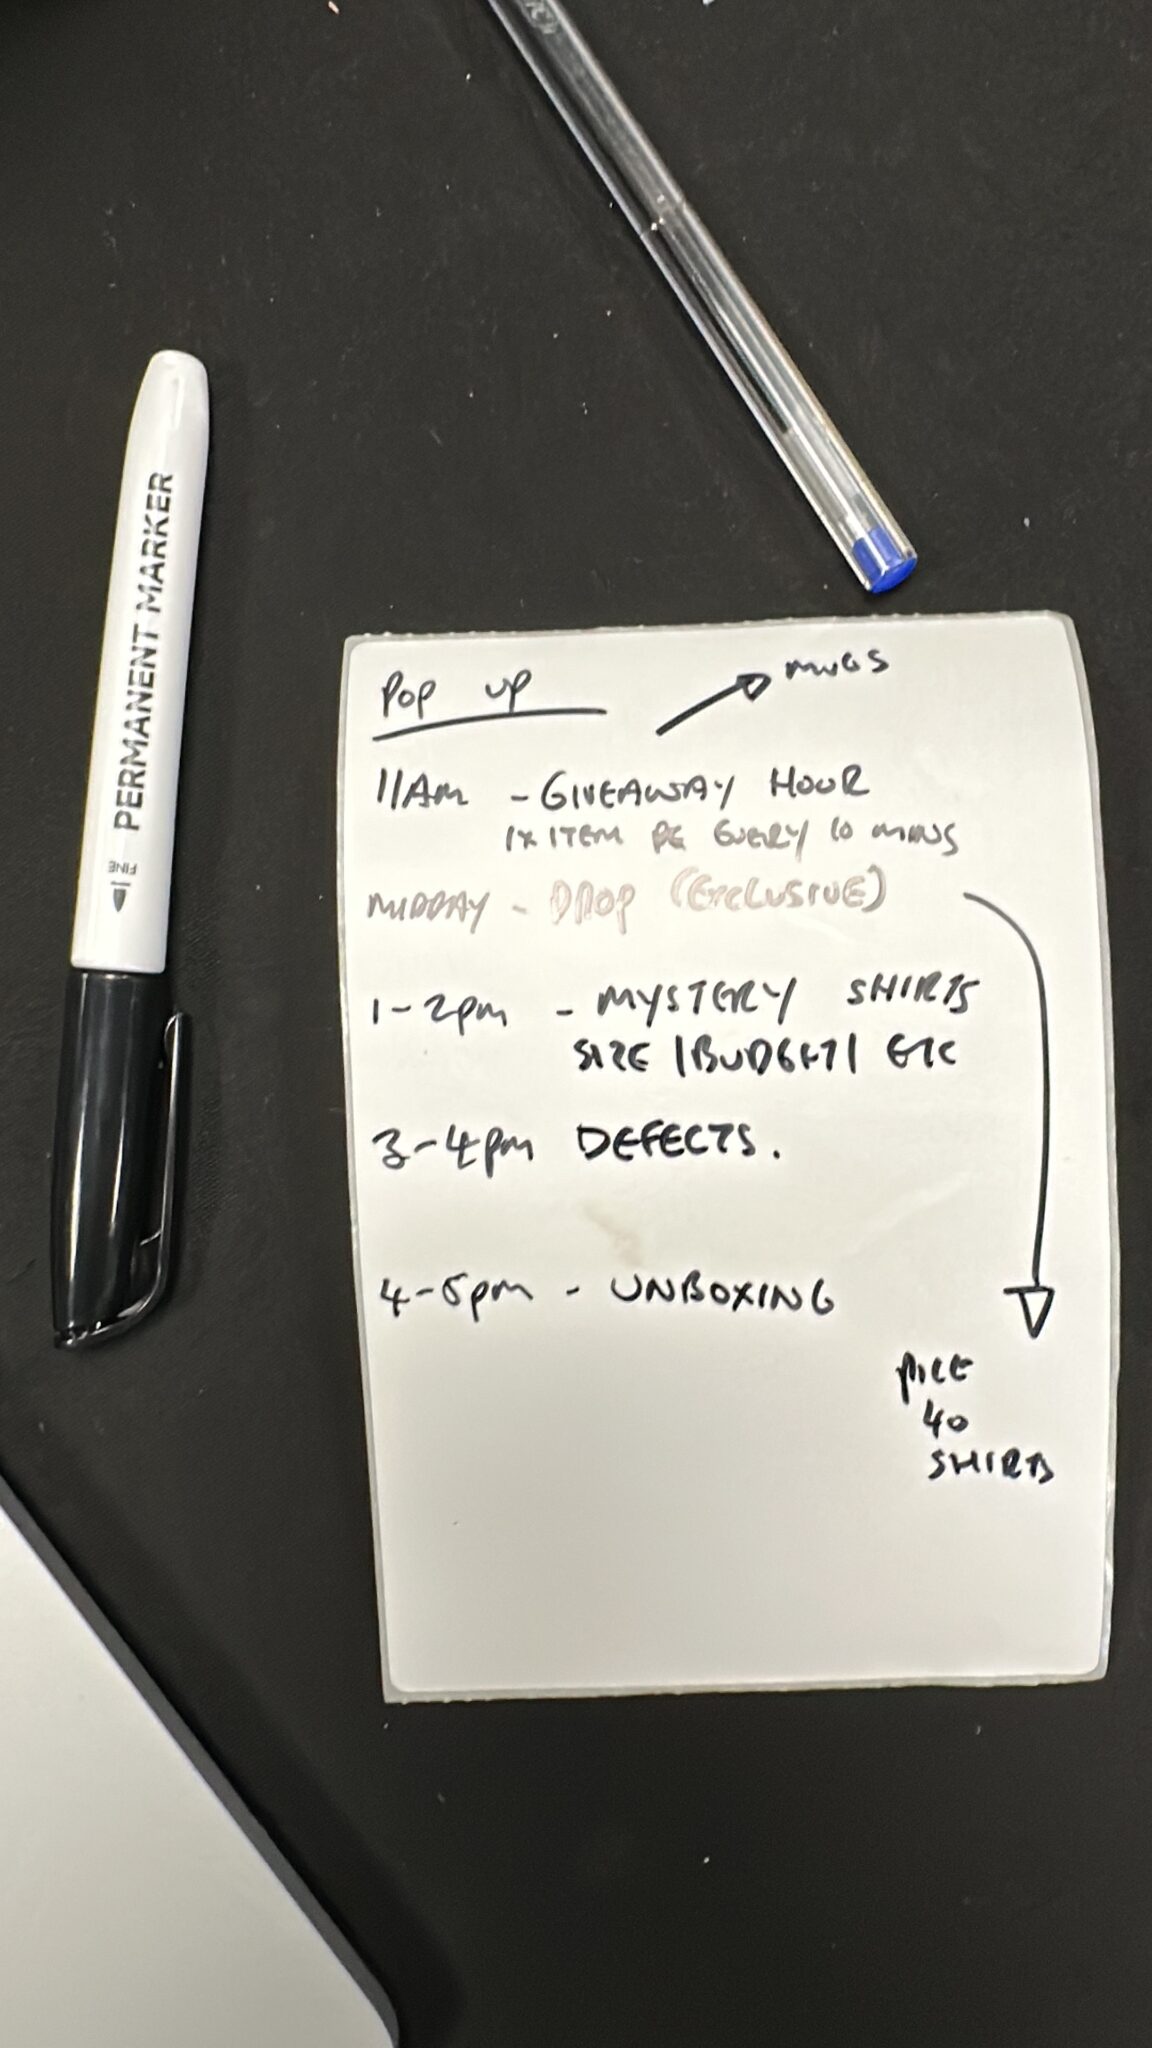 PERMANENT MARKER
FINE
POP UP
MUGS
11AM - GIVEAWAY HOUR
1X ITEM PC EVERY 10 MINS
MIDDAY - DROP (EXCLUSIVE)
1-2pm - MYSTERY SHIRTS
SIZE |BUDGET| ETC
3-4pm DEFECTS.
4-5pm - UNBOXING
40
SHIRTS